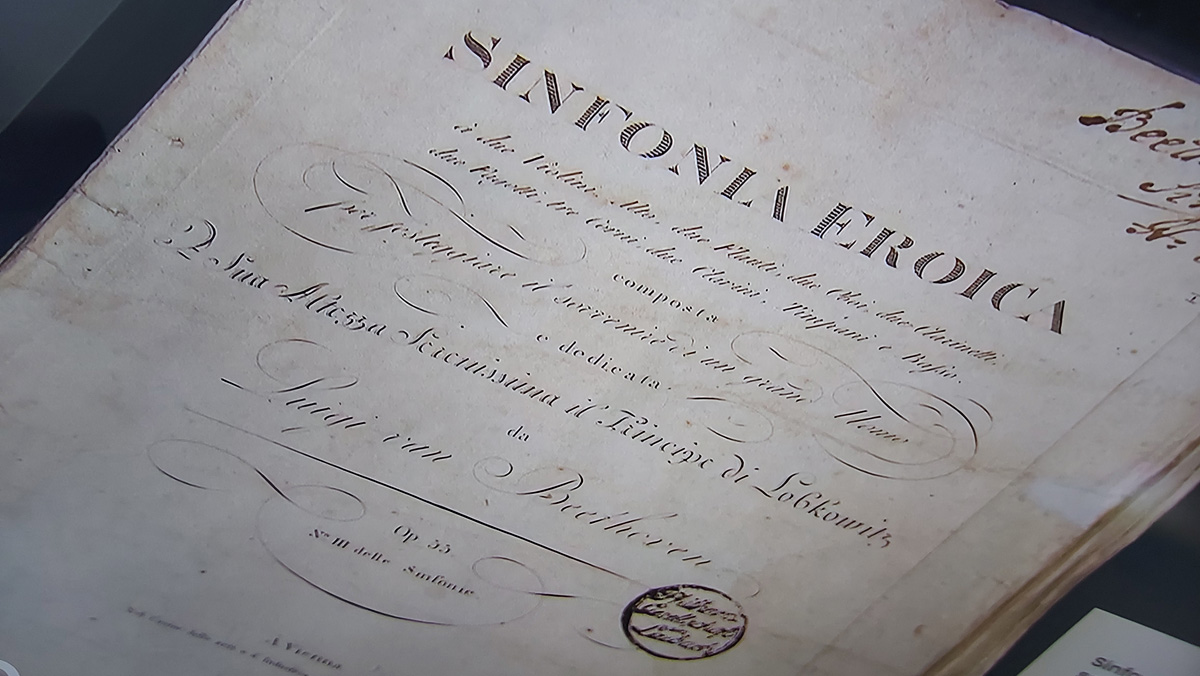 SINFONIA EROICA
à due Violini, Alto, due Flauti, due Oboi, due Clarinetti,
due Fagotti, tre Corni, due Clarini, Timpani e Basso.
composta
per festeggiare il sovvenire di un grand Uomo
e dedicata
A Sua Altezza Serenissima il Principe di Lobkowitz
da
Luigi van Beethoven
Op. 55
No III delle Sinfonie
A Vienna
Philharm.
Gesellschaft
Laibach